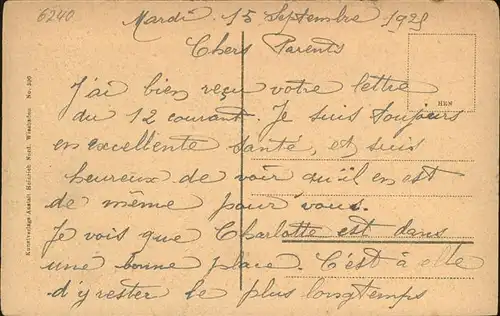 6240
Mardi 15 Septembre 1925
Chers Parents
J'ai bien reçu votre lettre
du 12 courant. Je suis toujours
en excellente santé, et suis
heureux de voir qu'il en est
de même pour vous.
Je vois que Charlotte est dans
une bonne place. C'est à elle
d'y rester le plus longtemps
HRN
Kunstverlags-Anstalt Heinrich Nord, Wiesbaden No. 530